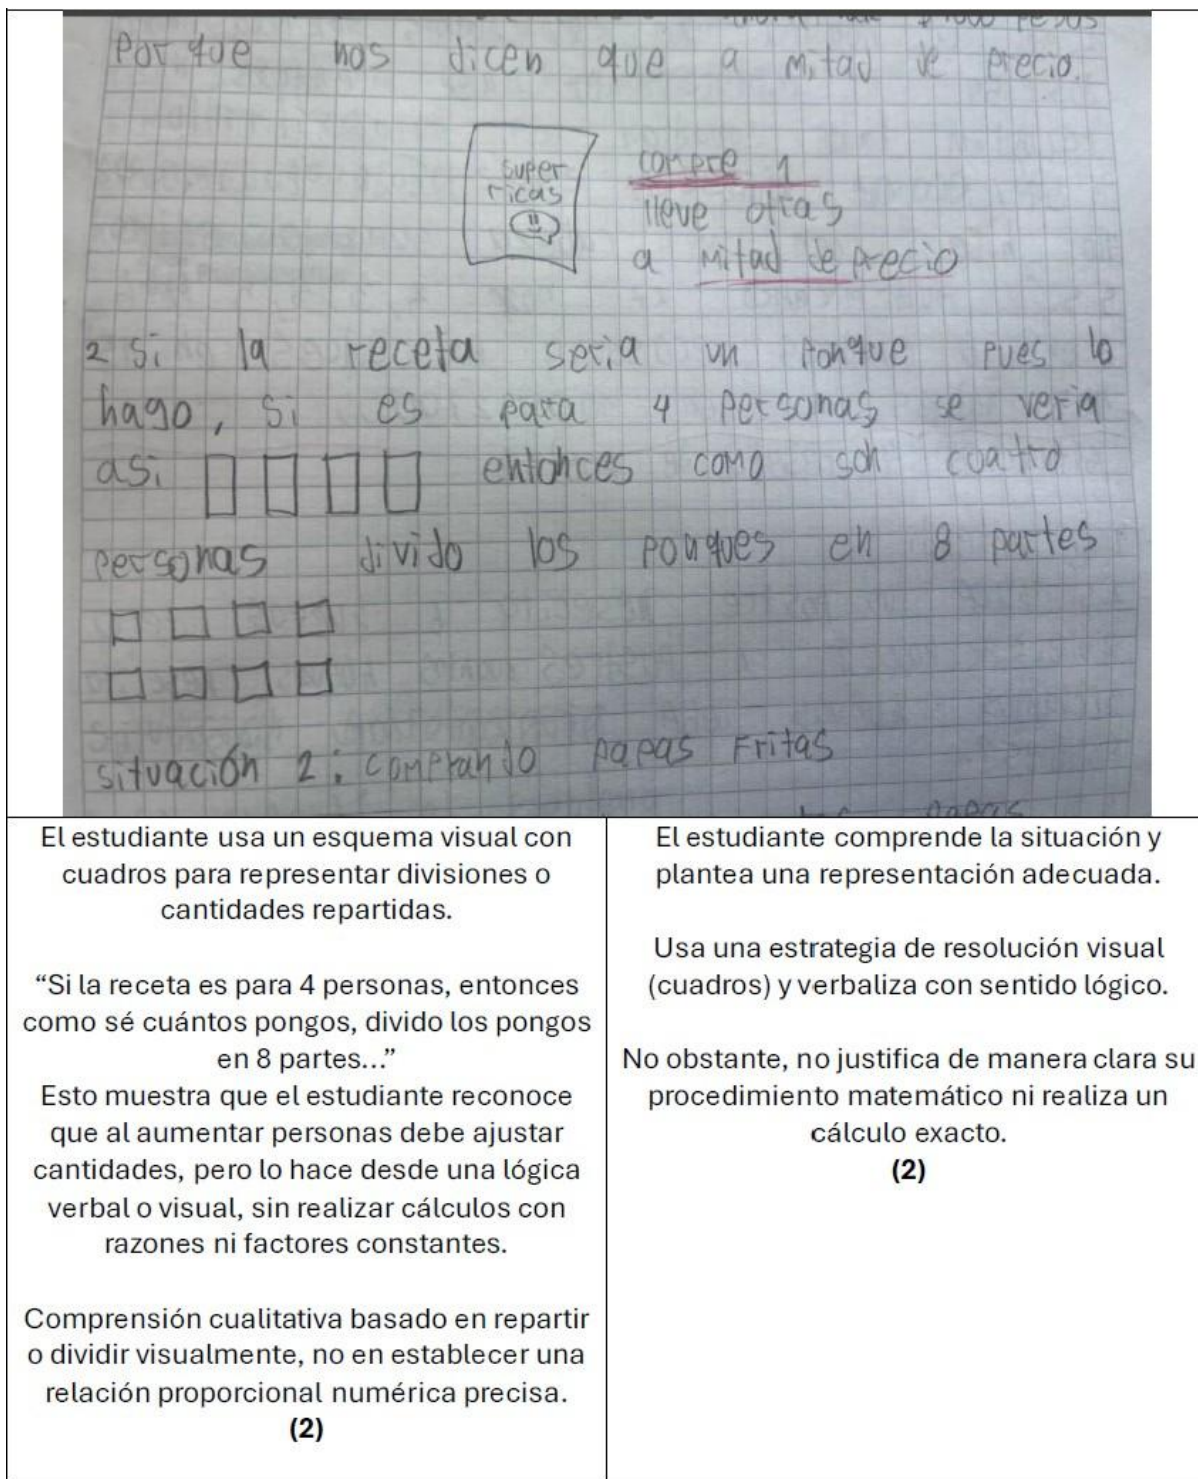 pesos
Porque nos dicen que a mitad de precio.
super
ricas
compre 1
lleve otras
a mitad de precio
2 si la receta seria un ponque pues lo
hago, si es para 4 personas se veria
asi entonces como son cuatro
personas divido los ponques en 8 partes
situación 2: comprando papas Fritas
papas
El estudiante usa un esquema visual con
cuadros para representar divisiones o
cantidades repartidas.
“Si la receta es para 4 personas, entonces
como sé cuántos pongos, divido los pongos
en 8 partes...”
Esto muestra que el estudiante reconoce
que al aumentar personas debe ajustar
cantidades, pero lo hace desde una lógica
verbal o visual, sin realizar cálculos con
razones ni factores constantes.
Comprensión cualitativa basado en repartir
o dividir visualmente, no en establecer una
relación proporcional numérica precisa.
(2)
El estudiante comprende la situación y
plantea una representación adecuada.
Usa una estrategia de resolución visual
(cuadros) y verbaliza con sentido lógico.
No obstante, no justifica de manera clara su
procedimiento matemático ni realiza un
cálculo exacto.
(2)